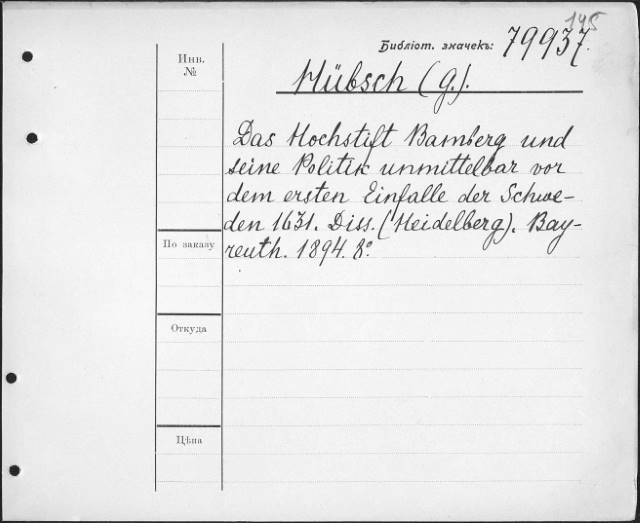 195
Библіот. значекъ: 79937.
Инв.
№
Hübsch (G.).
Das Hochstift Bamberg und
seine Politik unmittelbar vor
dem ersten Einfalle der Schwe-
den 1631. Diss. (Heidelberg). Bay-
reuth. 1894. 8°.
По заказу
Откуда
Цѣна